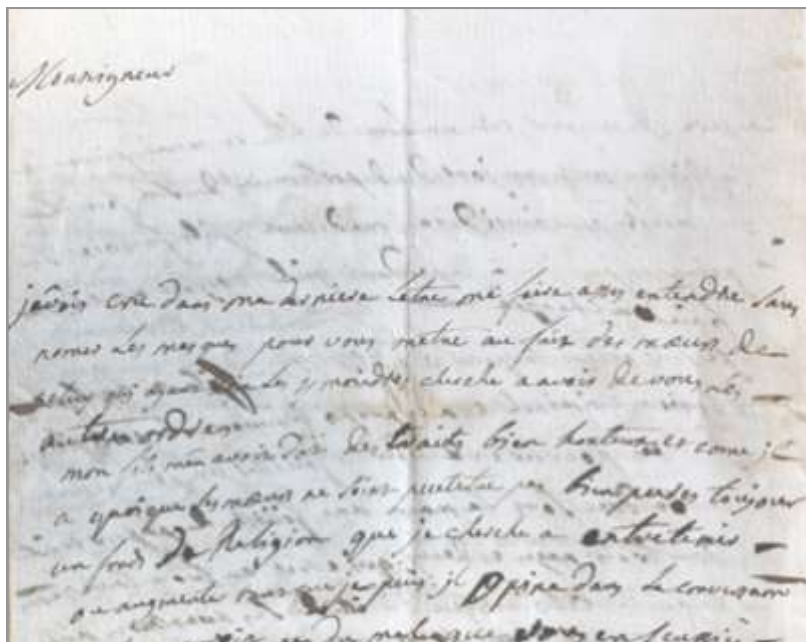 Monseigneur
javois cru dans ma derniere Lettre me faire asses entendre sans
nomer Les masques pour vous metre au fait des mœurs de
celuy qui Les moindres cherche a avoir de vous Les
autres ordres
mon fils men avoit dit des traits bien honteux et come jl
a quoique ses mœurs ne soint peutetre pas bien pures toujours
un fond de Religion que je cherche a entretenir
ou augmenté que je puis jl opine dans La conversation